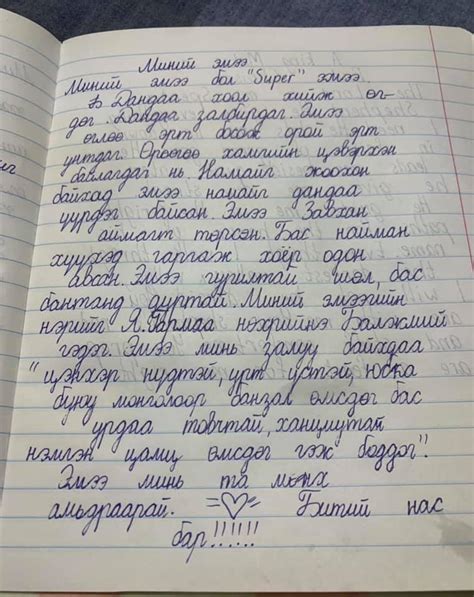 Миний эмээ
Миний эмээ бол "Super" эмээ.
Дандаа хоол хийж өг-
дөг. Дандаа залбирдаг. Эмээ
өглөө эрт босож орой эрт
унтдаг. Өрөөгөө хамгийн цэвэрхэн
байлгадаг нь. Намайг жоохон
байхад эмээ намайг дандаа
үүрдэг байсан. Эмээ Завхан
аймагт төрсөн. Бас найман
хүүхэд гаргаж хоёр одон
авсан. Эмээ гурилтай шөл, бас
бантанд дуртай. Миний эмээгийн
нэрийг Я. Гармаа нөхрийнэ Балжмий
гэдэг. Эмээ минь залуу байхдаа
"цэнхэр нүдтэй, урт үстэй, юбка
буюу монголоор банзал өмсдөг бас
урдаа товчтай, ханцуйтай
нэмгэн цамц өмсдөг гэж боддог".
Эмээ минь та мөнх
амьдраарай. Битий нас
бар!!!!!!